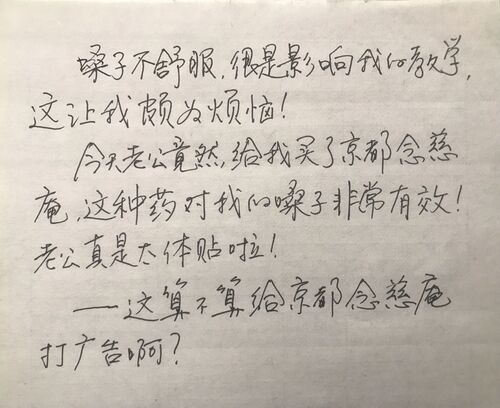 嗓子不舒服,很是影响我的教学,
这让我颇为烦恼!
今天老公竟然给我买了京都念慈
庵,这种药对我的嗓子非常有效!
老公真是太体贴啦!
——这算不算给京都念慈庵
打广告啊?